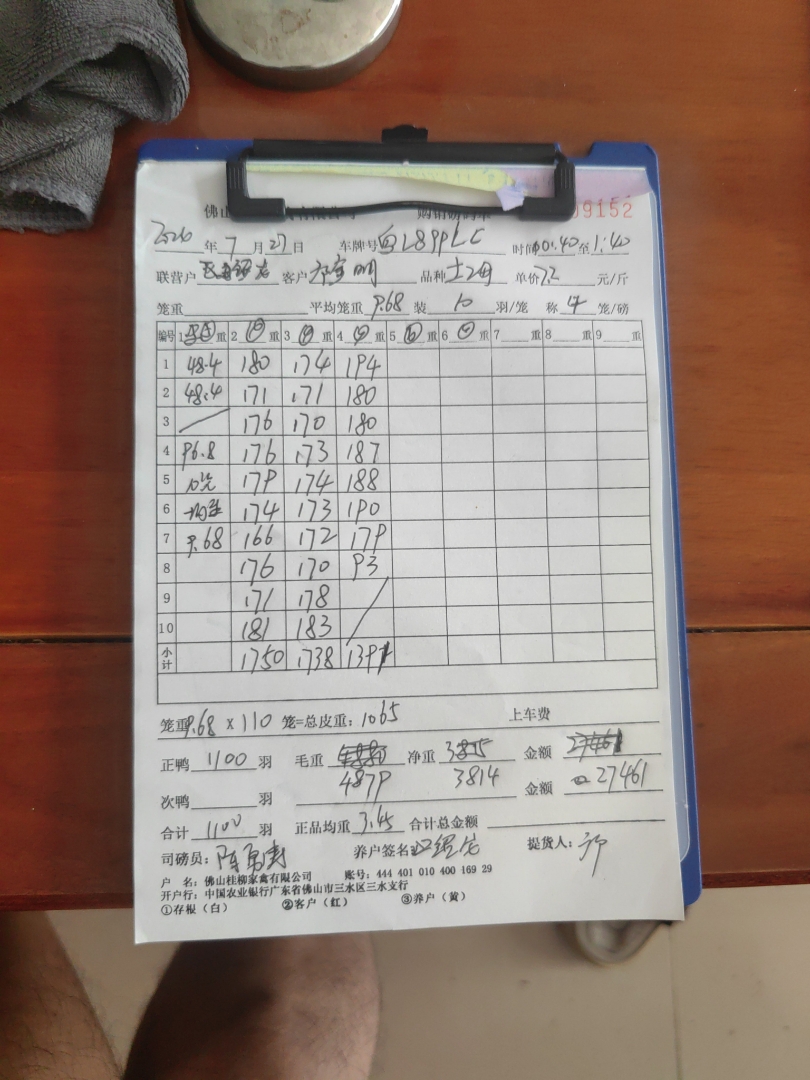 佛山 有限公司 购销磅码单 09152
2026 年 7 月 27 日 车牌号 时间 01:40 至 1:40
联营户 客户 明 品种 土2母 单价 7.2 元/斤
笼重 平均笼重 9.68 装 10 羽/笼 称 4 笼/磅
编号 1 重 2 重 3 重 4 重 5 重 6 重 7 重 8 重 9 重
1 48.4 180 174 194
2 48.4 171 171 180
3 176 170 180
4 96.8 176 173 187
5 10笼 179 174 188
6 均重 174 173 190
7 9.68 166 172 179
8 176 170 93
9 171 178
10 181 183
小计 1750 1738 1391
笼重 9.68 x 110 笼=总皮重: 1065 上车费
正鸭 1100 羽 毛重 净重 金额
4879 3814
次鸭 羽 金额 27461
合计 1100 羽 正品均重 3.45 合计总金额
司磅员: 陈 养户签名 提货人:
户 名: 佛山桂柳家禽有限公司 账号: 444 401 010 400 169 29
开户行: 中国农业银行广东省佛山市三水区三水支行
①存根（白） ②客户（红） ③养户（黄）